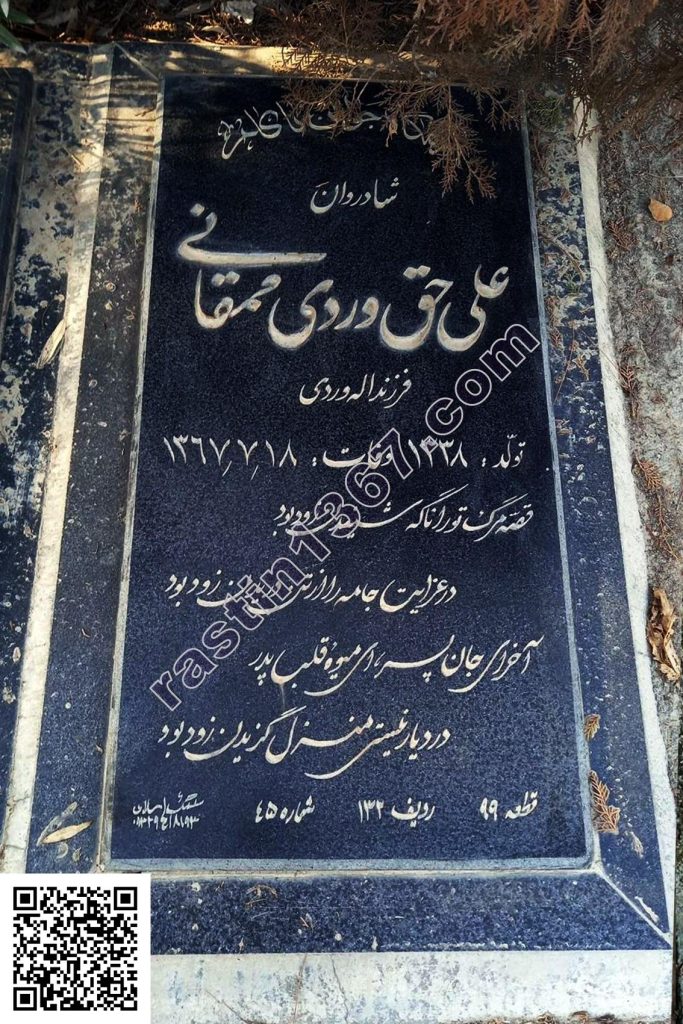 شادروان
علی حق وردی ممقانی
فرزند اله وردی
تولد: ۱۳۳۸ وفات: ۱۳۶۷٫۷٫۱۸
قصه مرگ تو را ناگه شنیدن زود بود
در عزایت جامه را از تن دریدن زود بود
آخر ای جان پسر، ای میوه قلب پدر
در دیار نیستی منزل گزیدن زود بود
قطعه ۹۹ ردیف ۱۳۲ شماره ۴۵
rastin1361.com